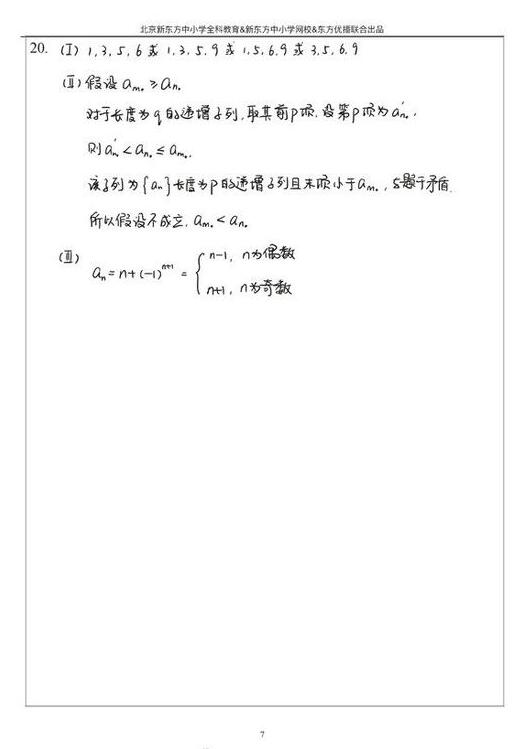 北京新东方中小学全科教育&新东方中小学网校&东方优播联合出品
20. (Ⅰ) 1,3,5,6 或 1,3,5,9 或 1,5,6,9 或 3,5,6,9
(Ⅱ) 假设 aₘ₀ ≥ aₙ₀
对于长度为 q 的递增子列,取其前 p 项,设第 p 项为 a'ₙ₀,
则 a'ₙ₀ < aₙ₀ ≤ aₘ₀,
该子列为{aₙ}长度为 p 的递增子列且末项小于 aₘ₀,与题干矛盾.
所以假设不成立, aₘ₀ < aₙ₀
(Ⅲ)
aₙ = n + (-1)ⁿ⁺¹ = { n-1, n为偶数
n+1, n为奇数
7